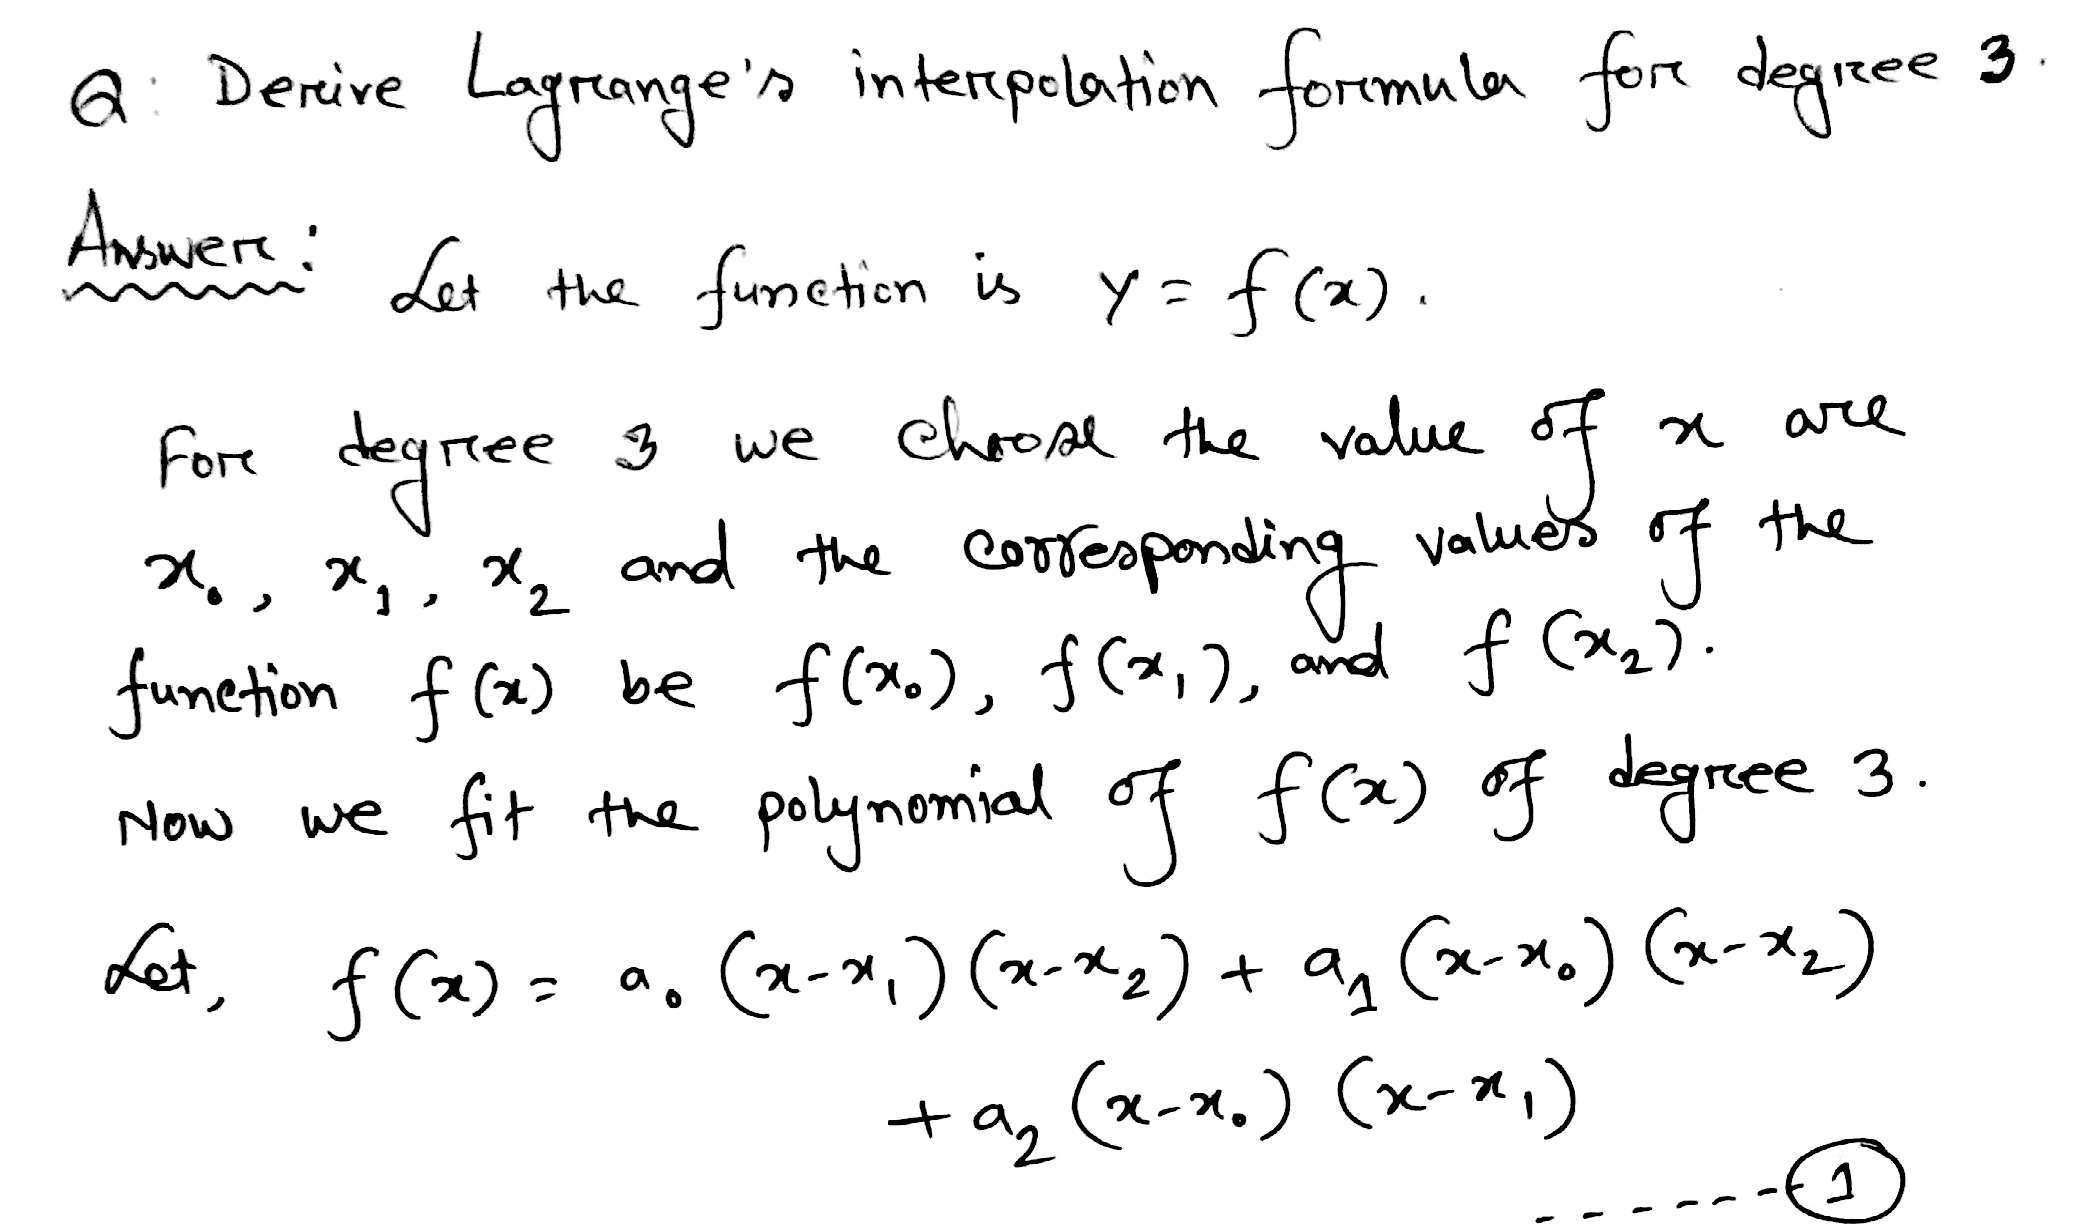 Q: Derive Lagrange's interpolation formula for degree 3.
Answer: Let the function is y = f(x).
For degree 3 we choose the value of x are
x₀, x₁, x₂ and the corresponding values of the
function f(x) be f(x₀), f(x₁), and f(x₂).
Now we fit the polynomial of f(x) of degree 3.
Let, f(x) = a₀ (x-x₁) (x-x₂) + a₁ (x-x₀) (x-x₂)
+ a₂ (x-x₀) (x-x₁)
------①